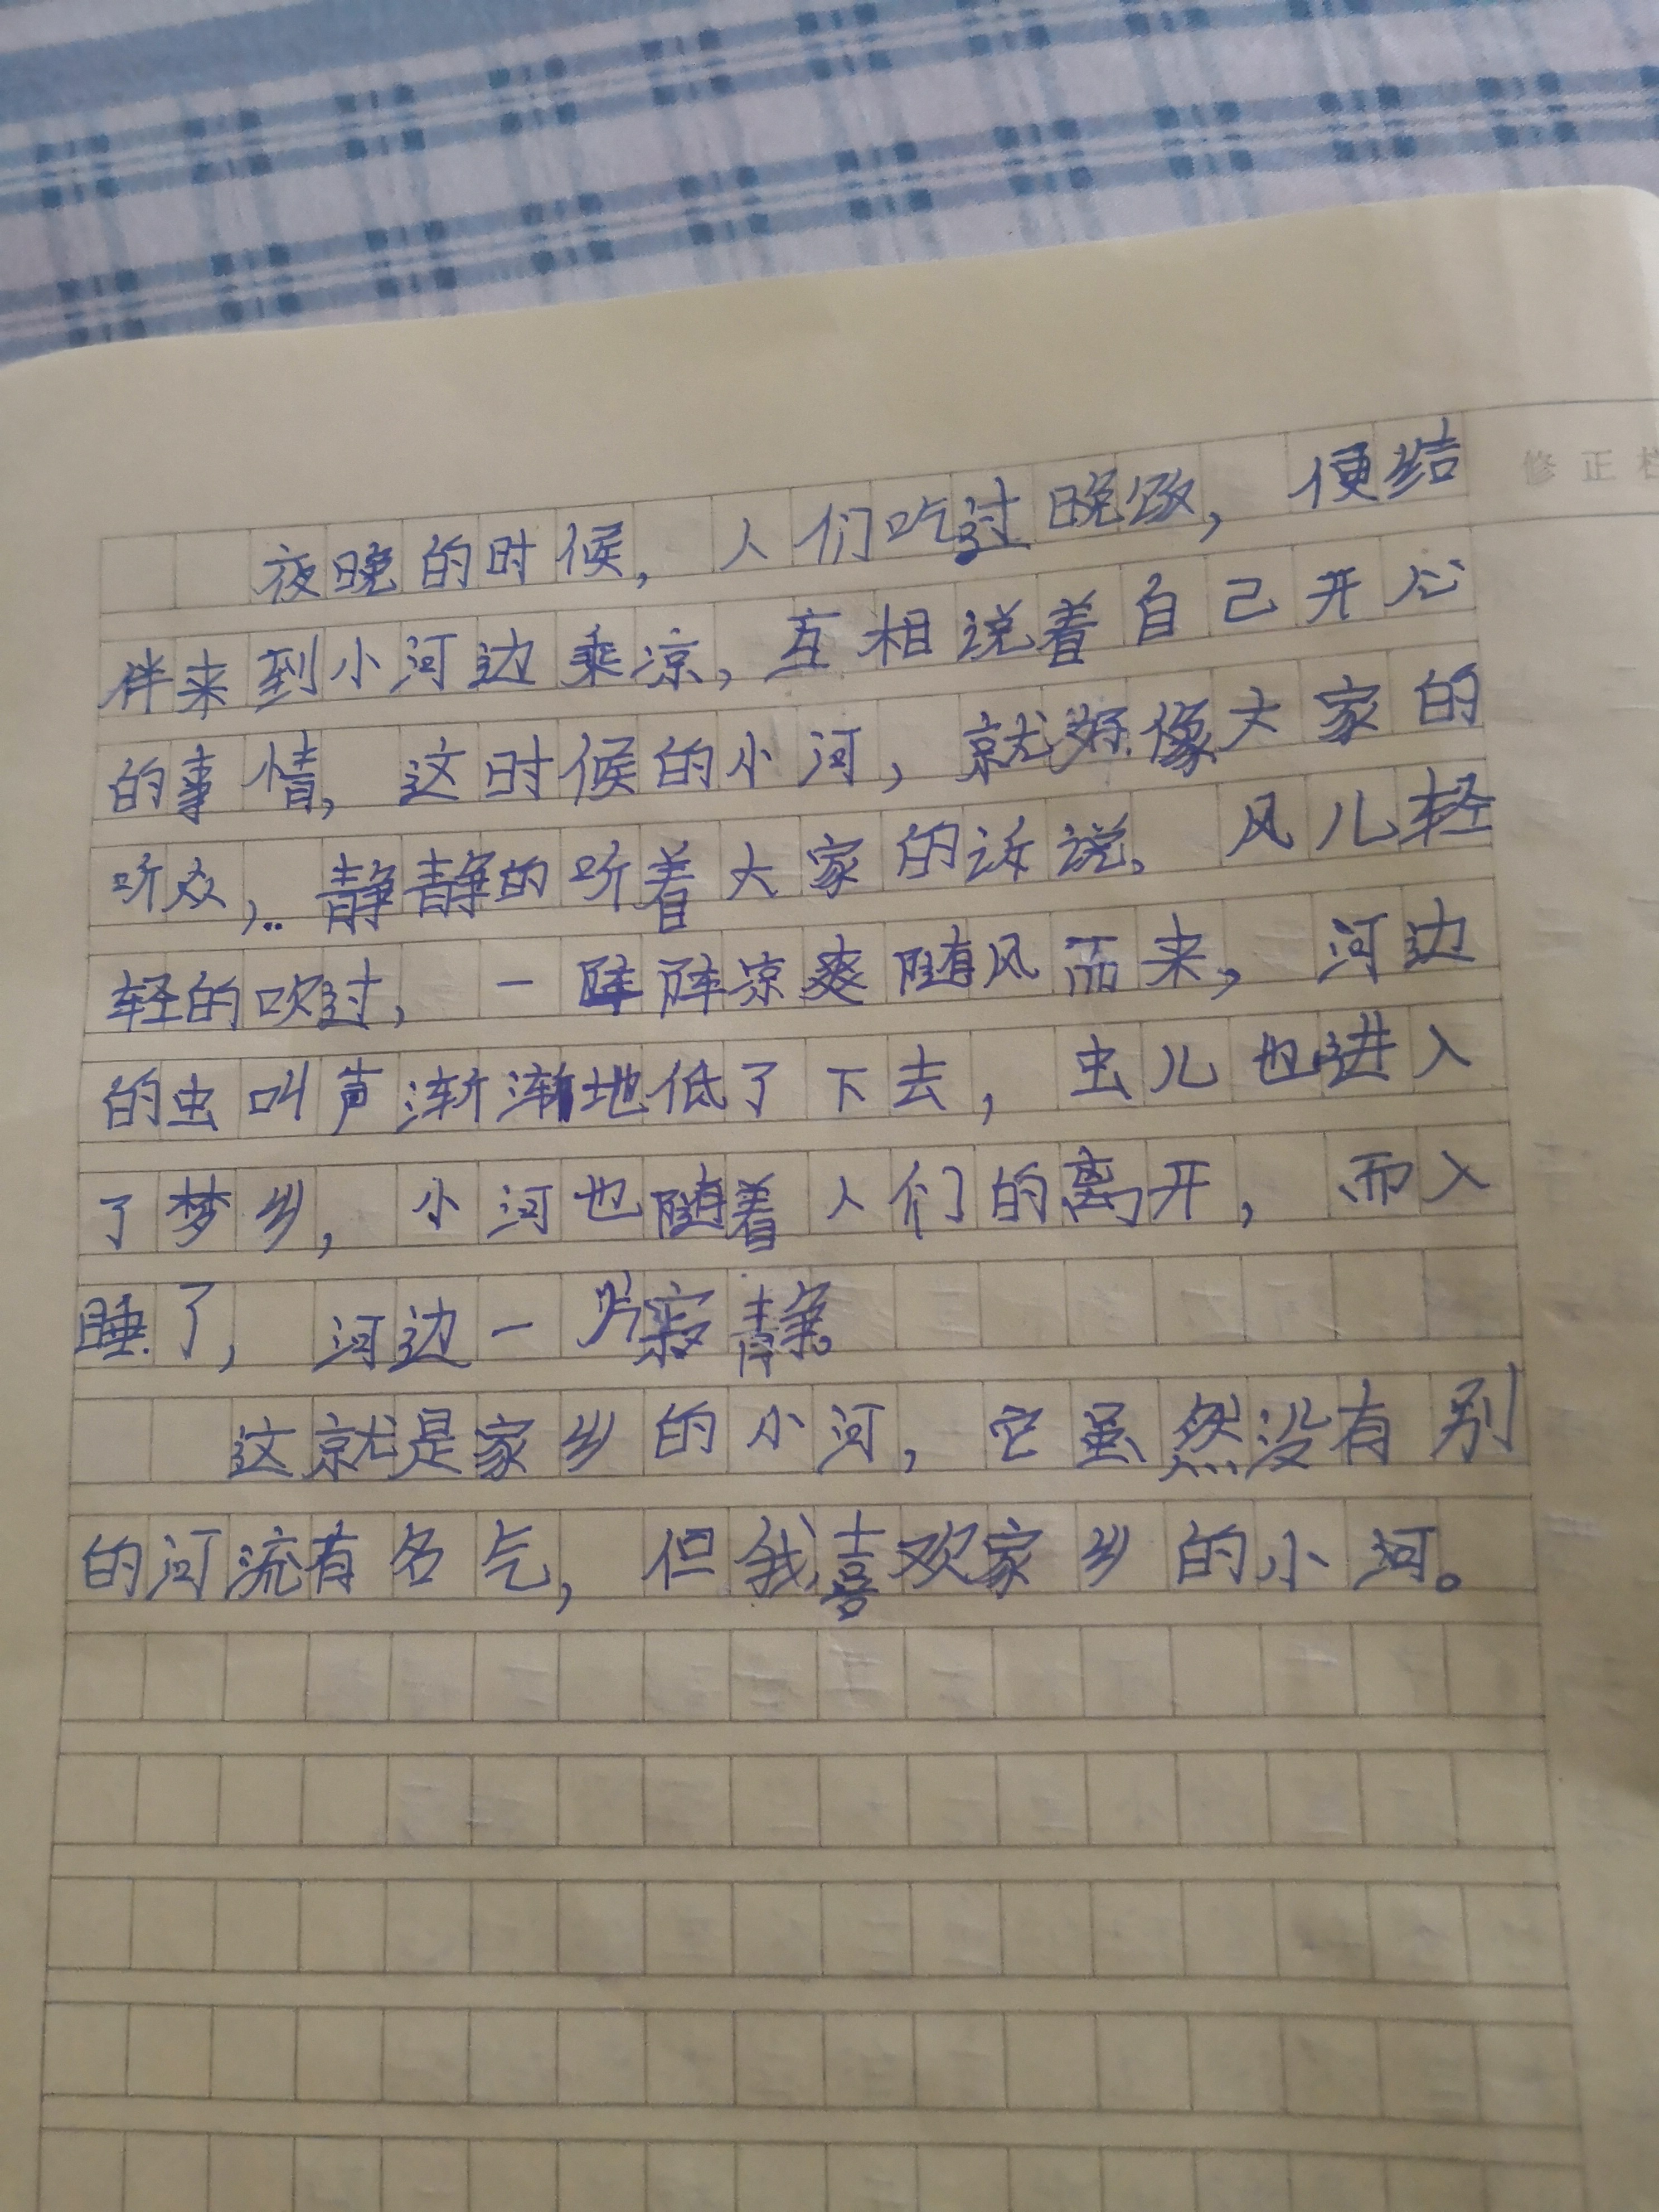 修正
夜晚的时候，人们吃过晚饭，便结
伴来到小河边乘凉，互相说着自己开心
的事情，这时候的小河，就好像大家的
听众，静静的听着大家的诉说。风儿轻
轻的吹过，一阵阵凉爽随风而来，河边
的虫叫声渐渐地低了下去，虫儿也进入
了梦乡，小河也随着人们的离开，而入
睡了，河边一片寂静。
这就是家乡的小河，它虽然没有别
的河流有名气，但我喜欢家乡的小河。